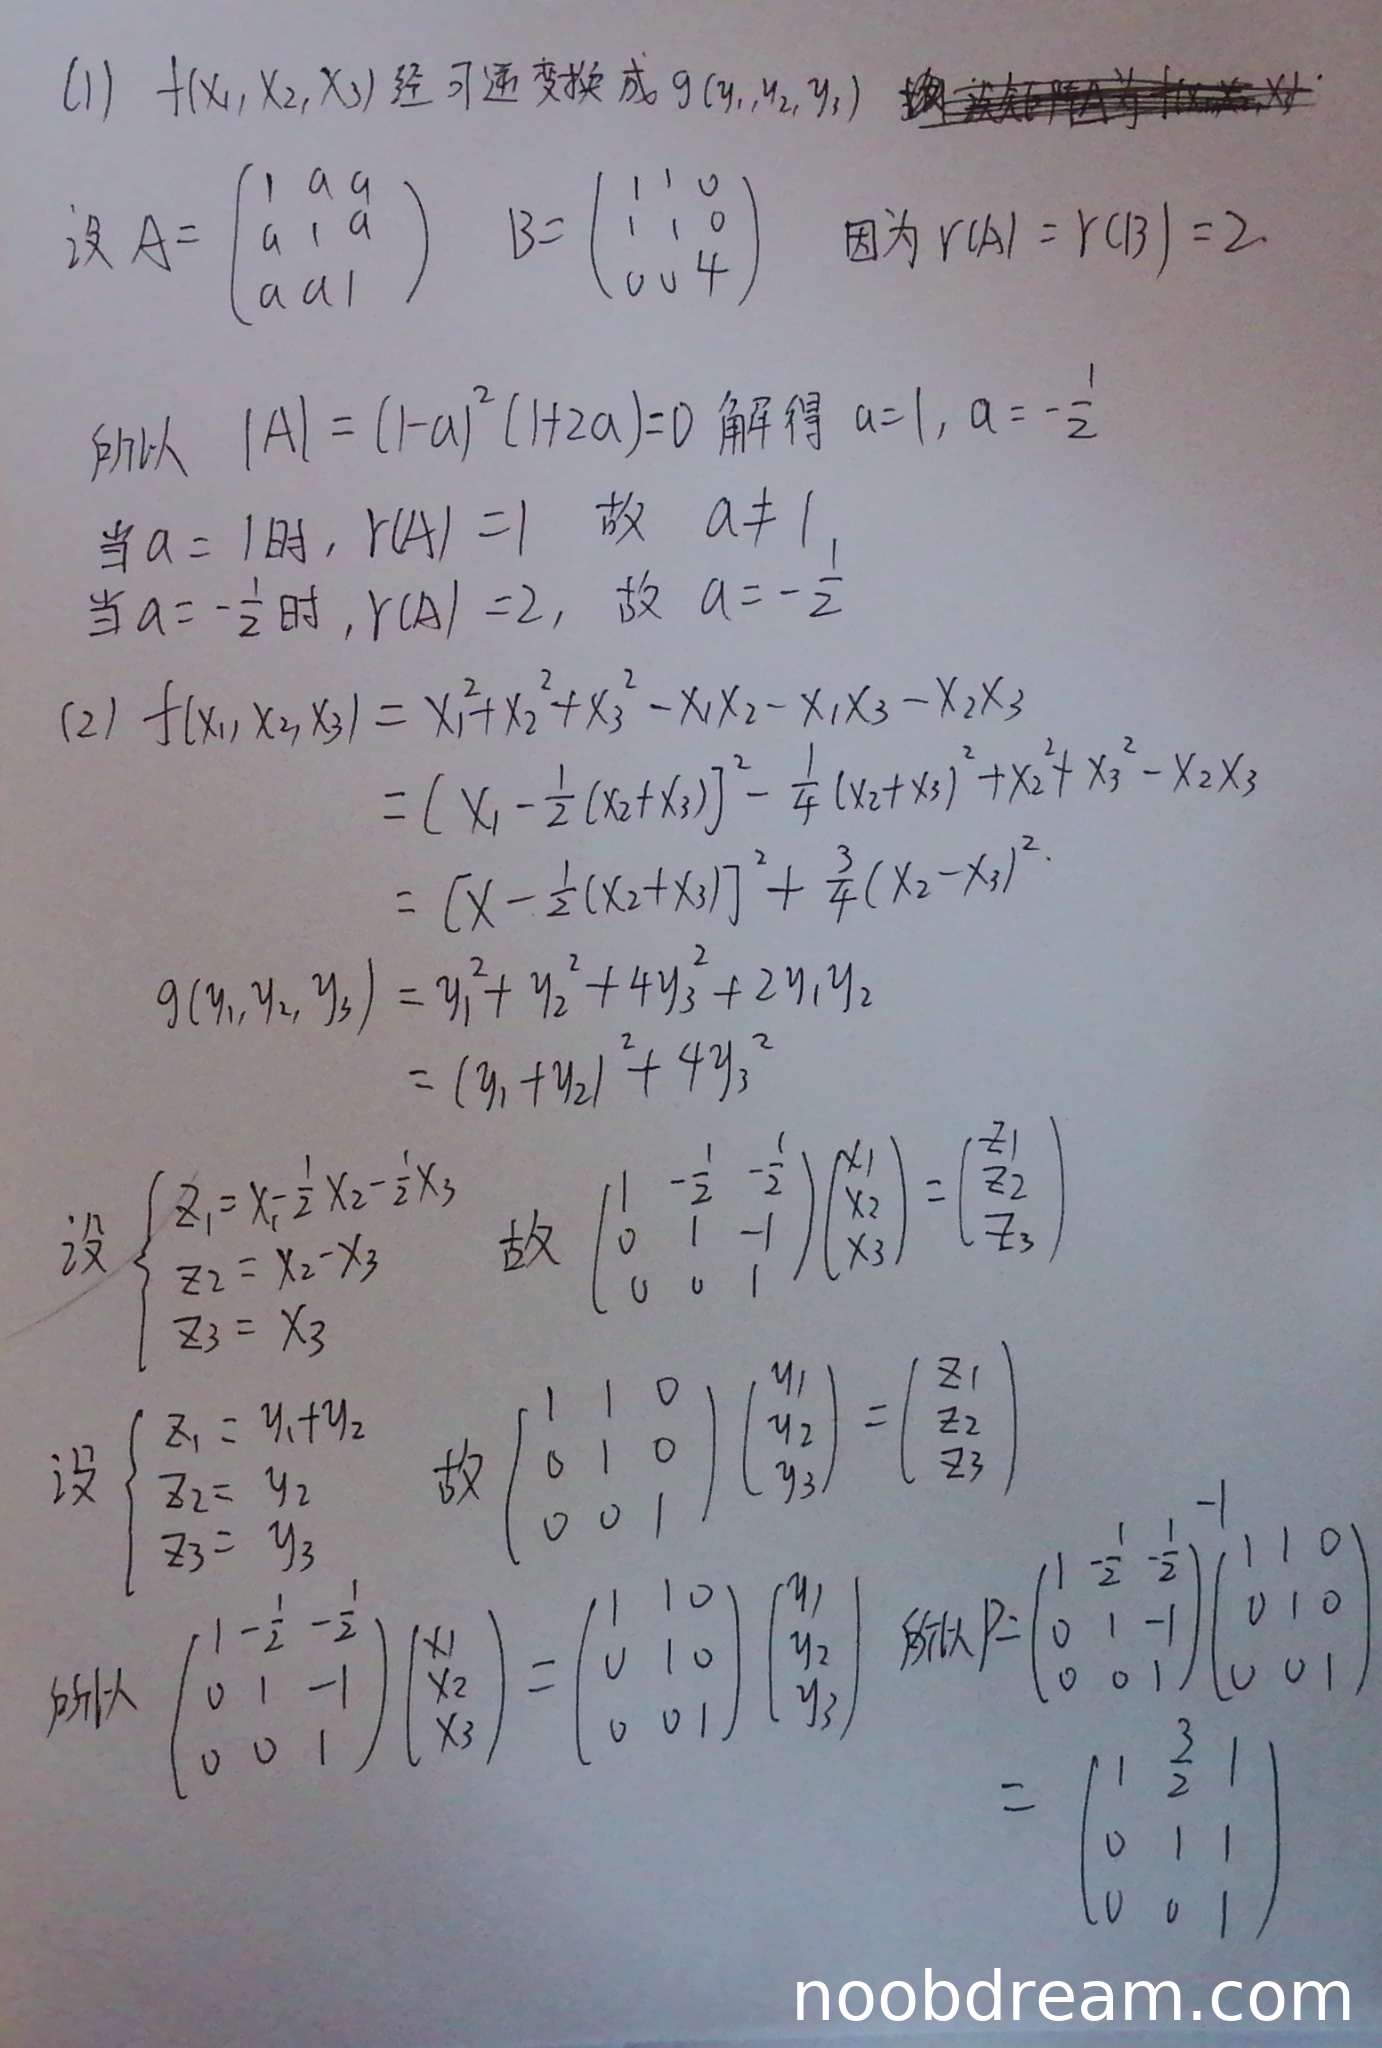 (1) f(x₁, x₂, x₃) 经可逆变换成 g(y₁, y₂, y₃)
设 A = (1 a a; a 1 a; a a 1) B = (1 1 0; 1 1 0; 0 0 4) 因为 r(A) = r(B) = 2.
所以 |A| = (1-a)²(1+2a)=0 解得 a=1, a = -1/2
当 a = 1时, r(A) = 1 故 a ≠ 1,
当 a = -1/2 时, r(A) = 2, 故 a = -1/2
(2) f(x₁, x₂, x₃) = x₁²+x₂²+x₃²-x₁x₂-x₁x₃-x₂x₃
= (x₁-1/2(x₂+x₃)]²-1/4(x₂+x₃)²+x₂²+x₃²-x₂x₃
= [x-1/2(x₂+x₃)]²+3/4(x₂-x₃)².
g(y₁, y₂, y₃) = y₁²+y₂²+4y₃²+2y₁y₂
= (y₁+y₂)²+4y₃²
设 { z₁=x₁-1/2x₂-1/2x₃ z₂=x₂-x₃ z₃=x₃ 故 (1 -1/2 -1/2; 0 1 -1; 0 0 1)(x₁; x₂; x₃) = (z₁; z₂; z₃)
设 { z₁=y₁+y₂ z₂=y₂ z₃=y₃ 故 (1 1 0; 0 1 0; 0 0 1)(y₁; y₂; y₃) = (z₁; z₂; z₃)
所以 (1 -1/2 -1/2; 0 1 -1; 0 0 1)(x₁; x₂; x₃) = (1 1 0; 0 1 0; 0 0 1)(y₁; y₂; y₃) 所以 P=(1 -1/2 -1/2; 0 1 -1; 0 0 1)⁻¹(1 1 0; 0 1 0; 0 0 1)
= (1 3/2 1; 0 1 1; 0 0 1)
noobdream.com